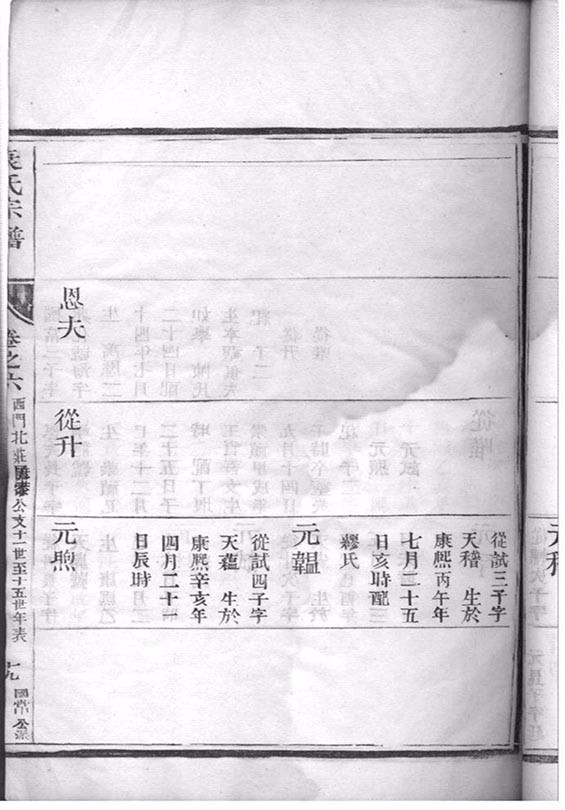 從試三子字
天稽 生於
康熙丙午年
七月二十五
日亥時配
繆氏
元韞
從試四子字
天蘊 生於
康熙辛亥年
四月二十一
日辰時
恩夫
從升
元煦
氏宗譜
卷之六
西門北莊
公支十一世至十五世年表
十九
國常公派